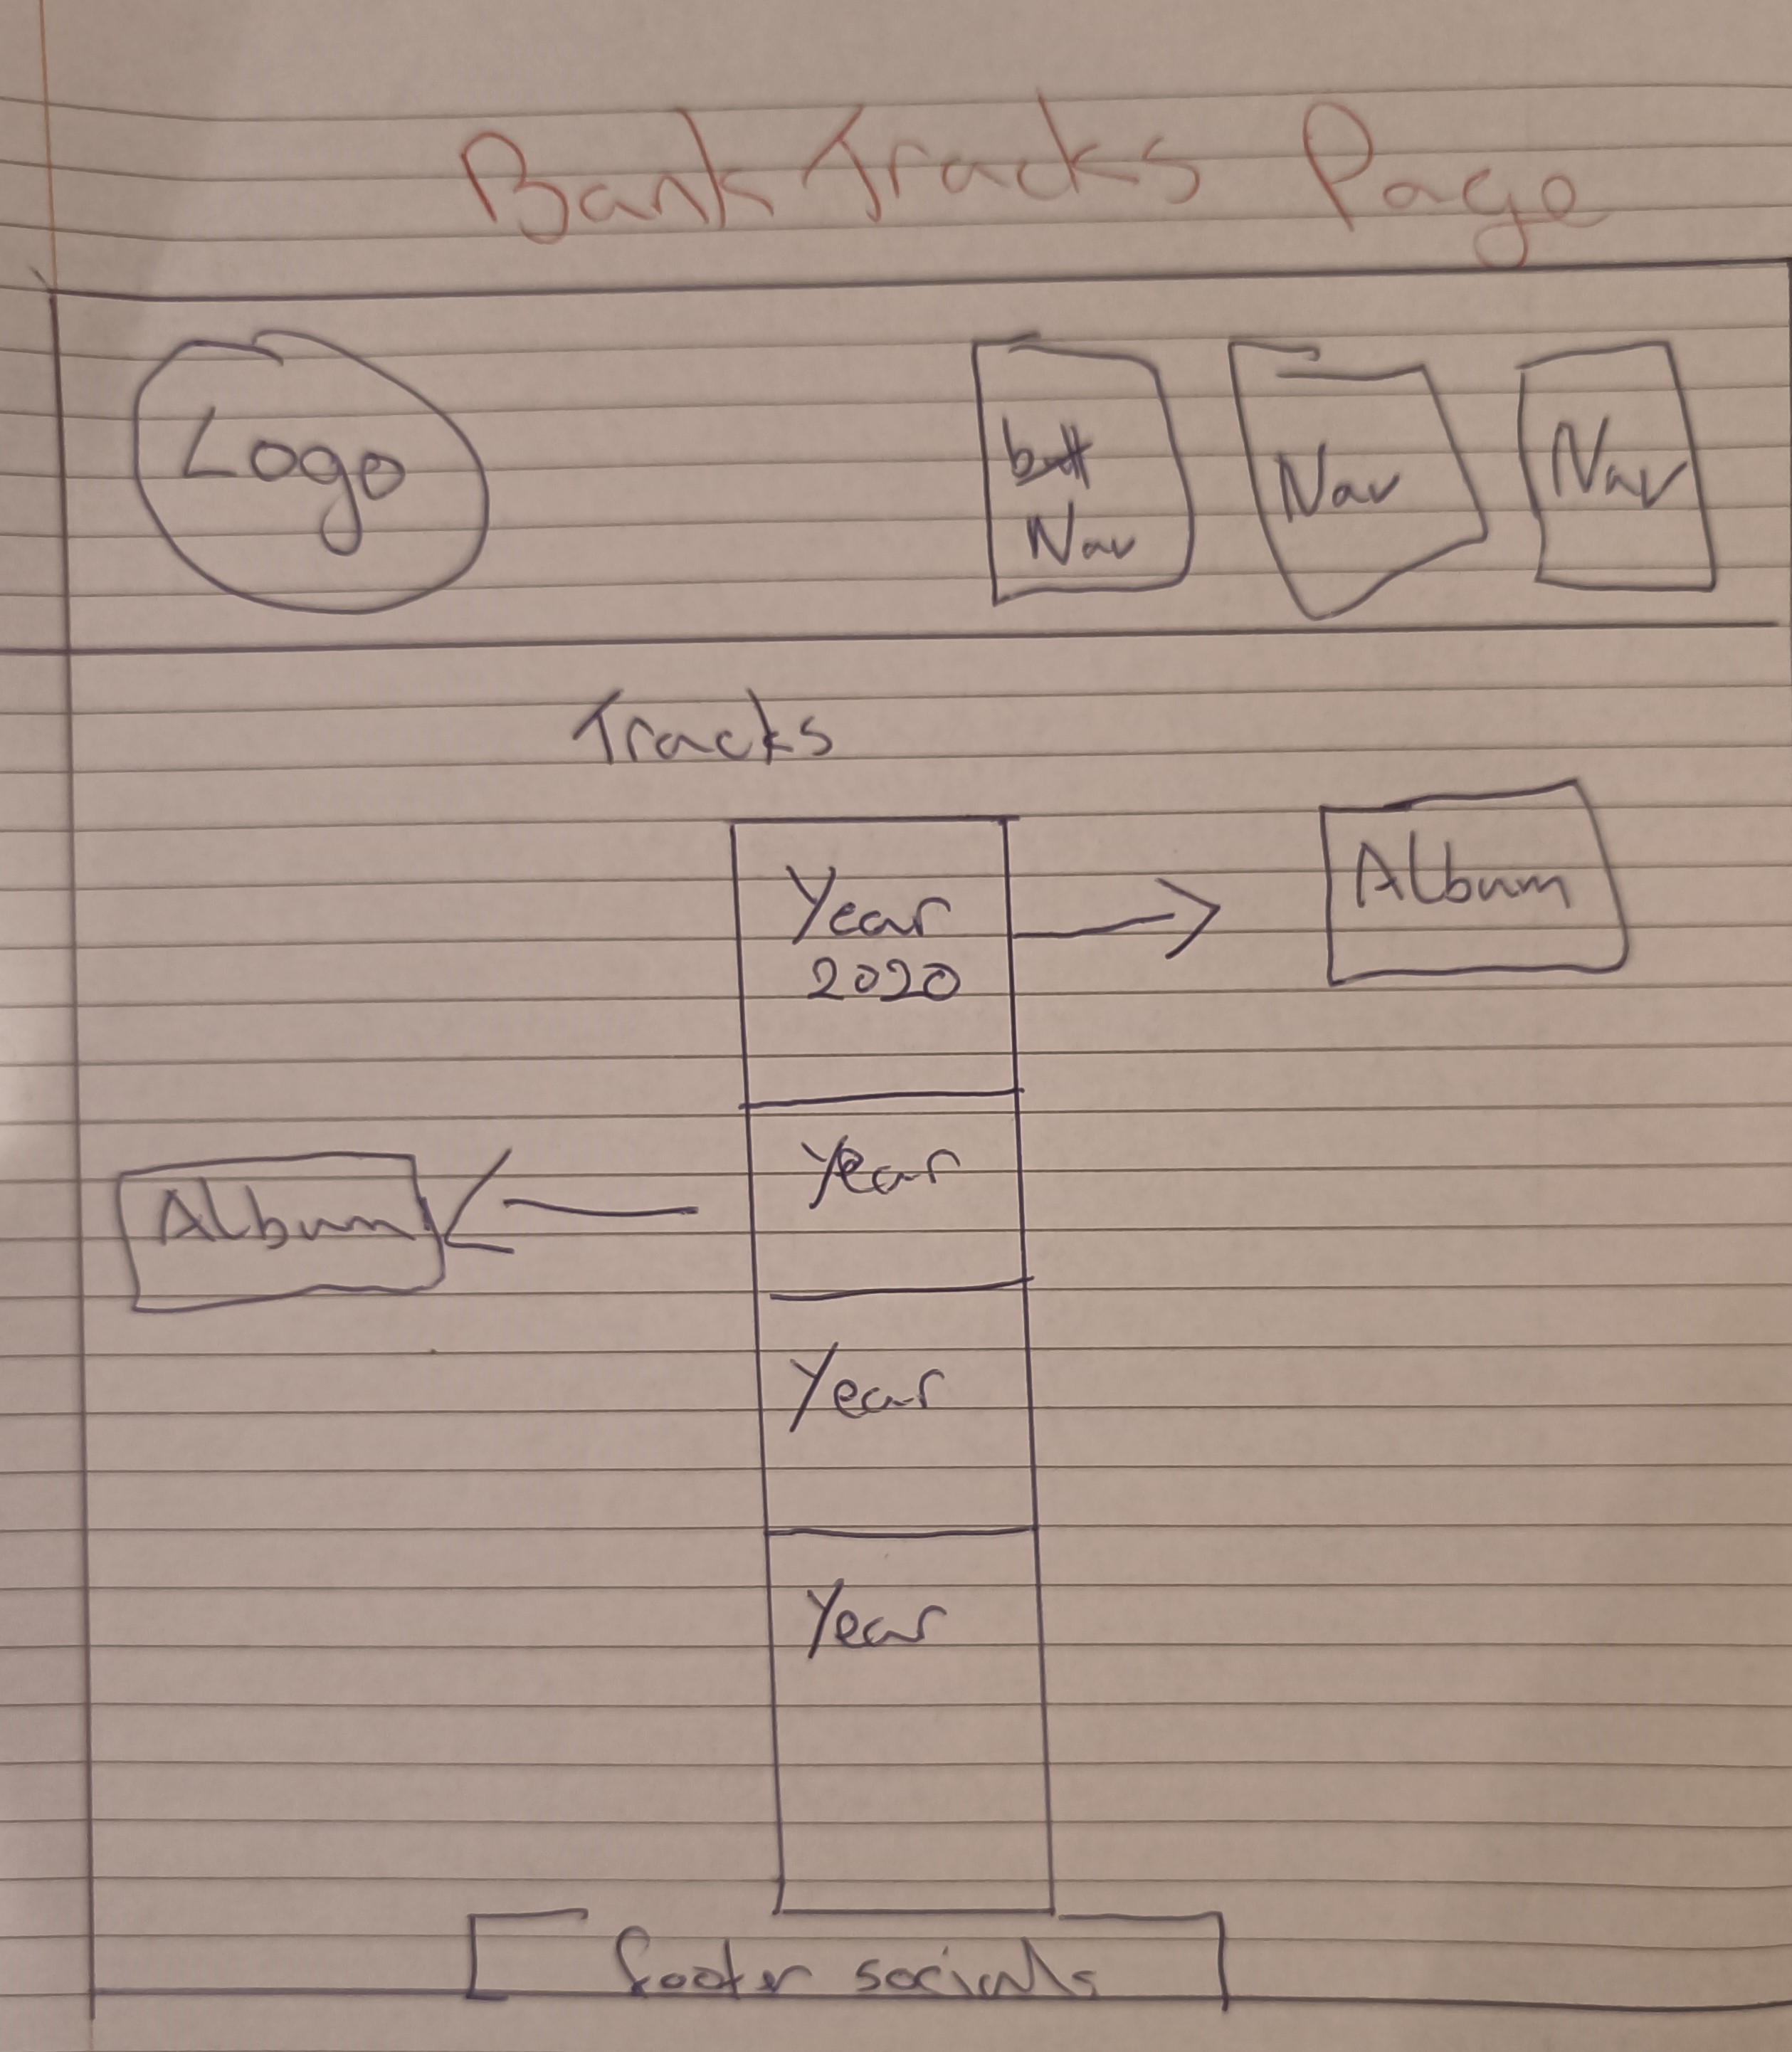 Bank Tracks Page
Logo
Nav
Nav
Nav
Tracks
Year
2020
Album
Year
Album
Year
Year
footer socials